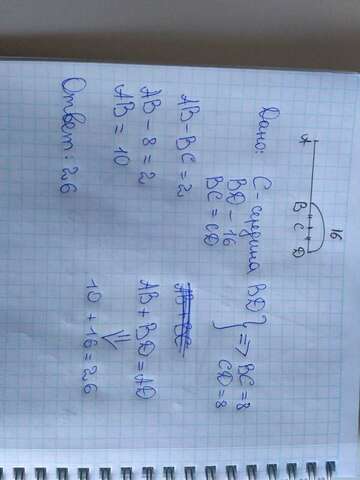 16
A B C D
Дано: C - середина BD } ⇒ BC = 8
BD - 16 CD = 8
BC = CD
AB - BC = 2
AB - 8 = 2 AB + BD = AD
AB = 10
10 + 16 = 26
Ответ: 26